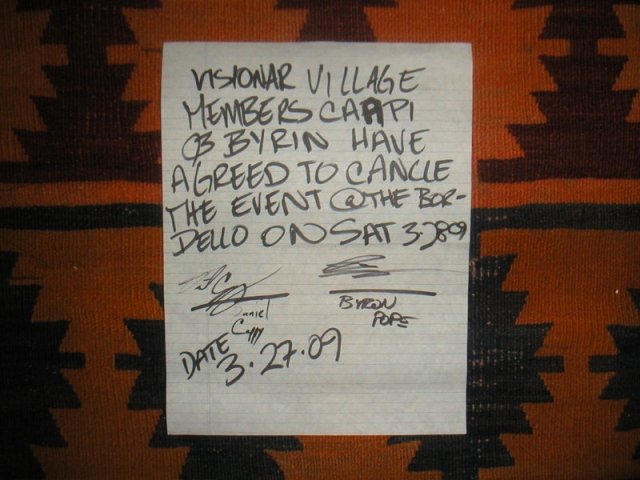 VISIONAR VILLAGE
MEMBERS CAPPI
& BYRIN HAVE
AGREED TO CANCLE
THE EVENT @ THE BOR-
DELLO ON SAT 3-2809
Daniel
BYRON
POPE
DATE
3.27.09